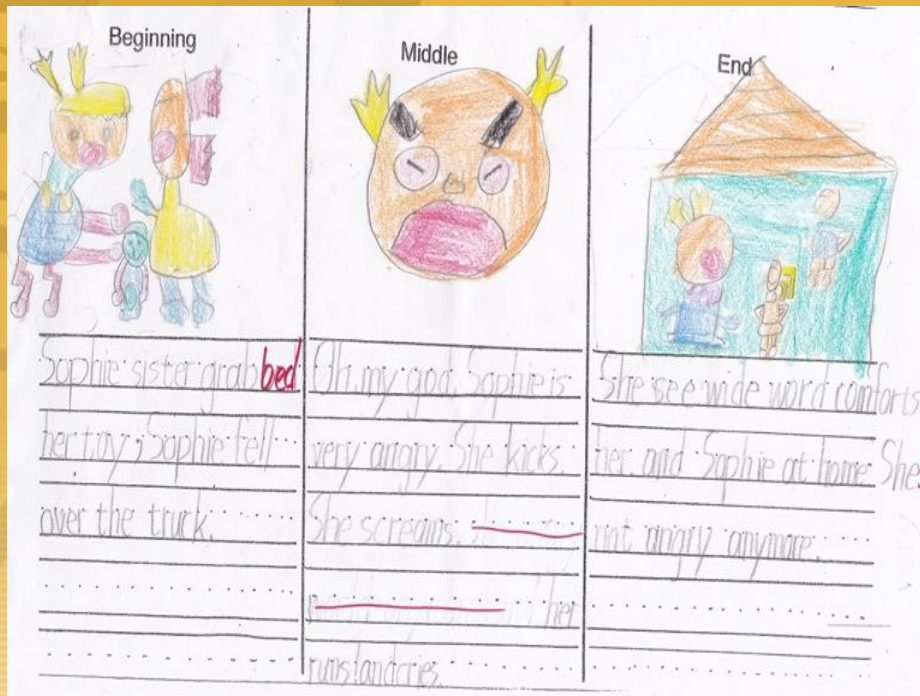 Beginning
Sophie sister grabbed
her toy, Sophie fell
over the truck.
Middle
Oh my god Sophie is
very angry. She kicks.
She screams.
her
runs! and cries.
End
She see wide word comforts
her and Sophie at home She
not angry anymore.